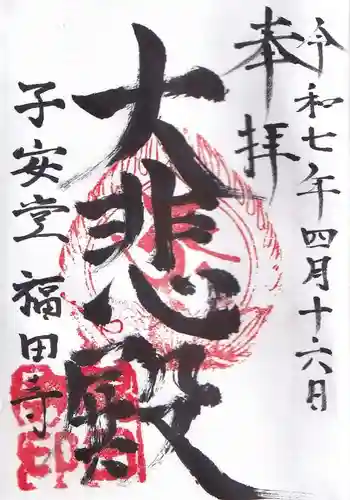 奉拝
令和七年四月十六日
大悲殿
子安堂 福田寺